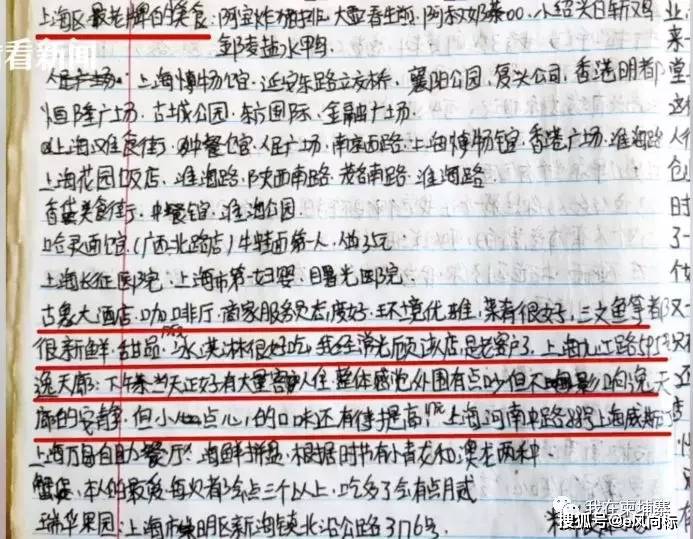 看看新闻
上海区最老牌的美食:阿宝炸猪排.大壶春生煎.阿 奶茶00.小绍兴白斩鸡
盐水鸭
人民广场.上海博物馆.延安东路立交桥.襄阳公园.复兴公司.香港明都
恒隆广场.古城公园.东方国际.金融广场.
上海汉 食街.中餐馆.人民广场.南京西路.上海博物馆.香港广场.淮海路
上海花园饭店.淮海路.陕西南路.茂名南路.淮海路.
美食街.中餐馆.淮海公园.
哈灵面馆.(广西北路店)牛 面第一人.做 元
上海长征医院.上海市第一妇婴.曙光医院.
古象大酒店.咖啡厅.商家服务员态度好.环境优雅.菜肴很好.三文鱼等都
很新鲜.甜品.冰淇淋很好吃.我经常光顾该店.是老客户了.上海九江路595号
逸天廊:下午茶当天正好有大量客人住.整体感觉外围有点吵但不 影响逸天
廊的安静.但小 点心.的口味还有待提高.上海河南中路 号上海威斯
上海万 自助餐厅.海鲜拼盘.根据时节有小青龙和澳龙两种
蟹 .本人的最爱.每次有 会点三个以上.吃多了会有点
瑞华果园:上海市崇明区新海镇北沿公路3176号.
我在柬埔寨
搜狐号@ 风向标